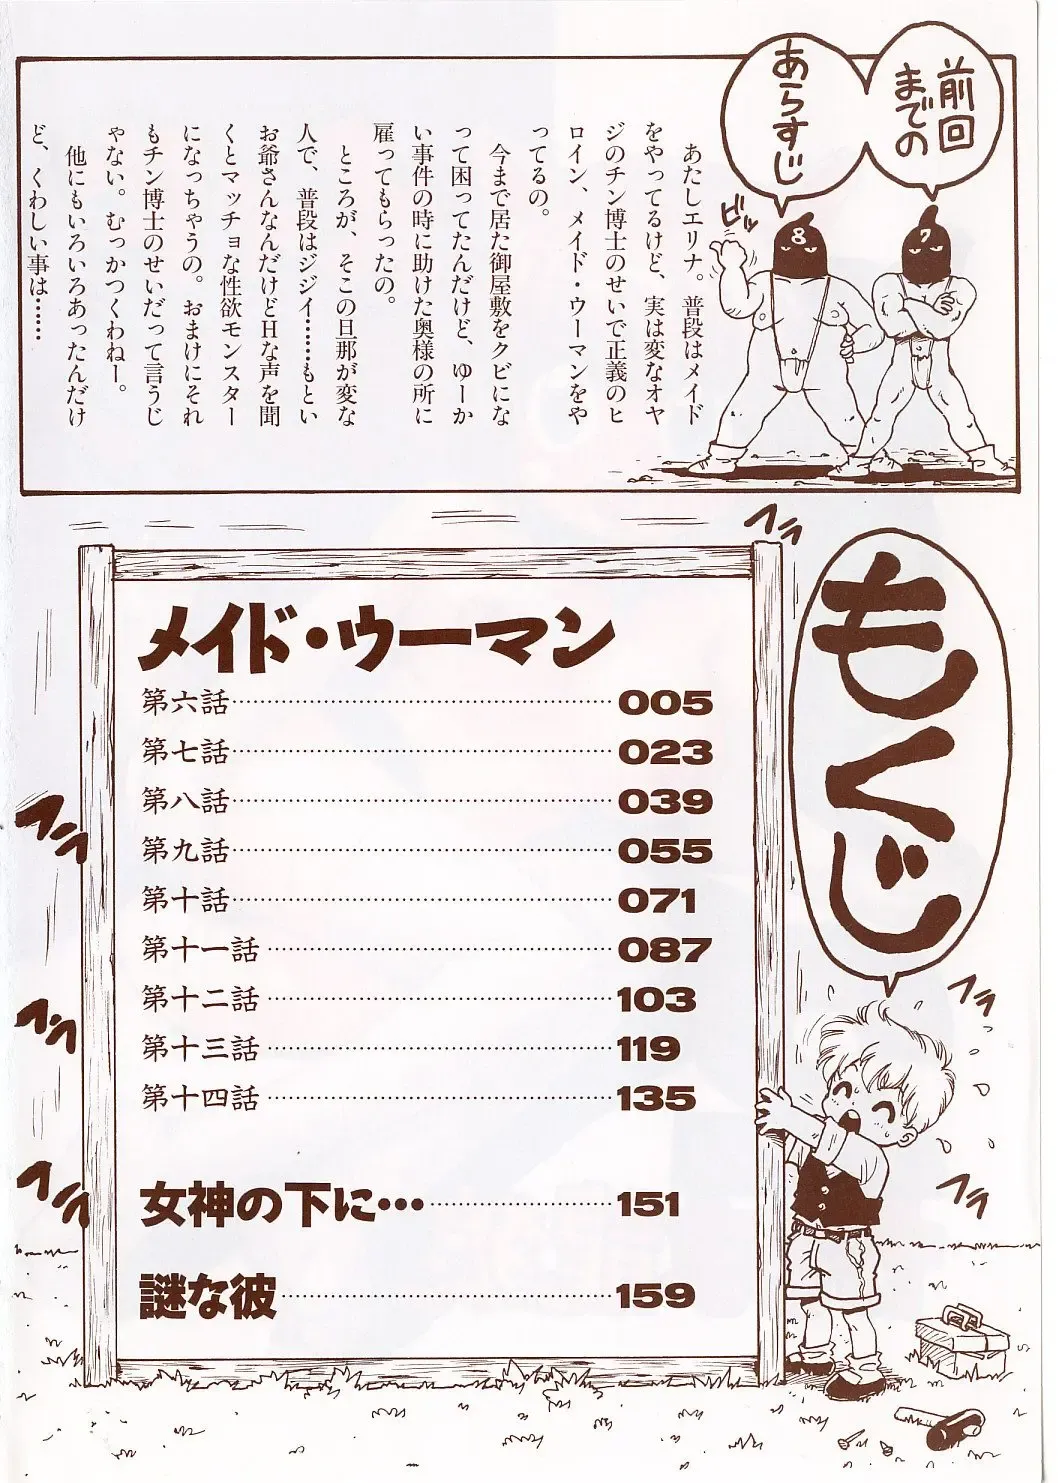 前回
までの
あらすじ
7
8
ビッ
　あたしエリナ。普段はメイド
をやってるけど、実は変なオヤ
ジのチン博士のせいで正義のヒ
ロイン、メイド・ウーマンをや
ってるの。
　今まで居た御屋敷をクビにな
って困ってたんだけど、ゆーか
い事件の時に助けた奥様の所に
雇ってもらったの。
　ところが、そこの旦那が変な
人で、普段はジジイ……もとい
お爺さんなんだけどHな声を聞
くとマッチョな性欲モンスター
になっちゃうの。おまけにそれ
もチン博士のせいだって言うじ
ゃない。むっかつくわねー。
　他にもいろいろあったんだけ
ど、くわしい事は……
もくじ
メイド・ウーマン
第六話 005
第七話 023
第八話 039
第九話 055
第十話 071
第十一話 087
第十二話 103
第十三話 119
第十四話 135
女神の下に… 151
謎な彼 159
フラ
フラ
フラ
フラ
フラ
フラ